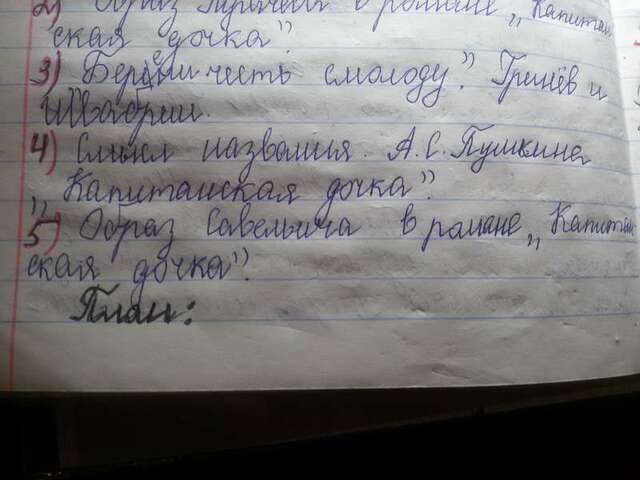 2) Образ Пугачёва в романе „Капитан
ская дочка".
3) „Береги честь смолоду". Гринёв и
Швабрин.
4) Смысл названия. А.С. Пушкина
„Капитанская дочка".
5) Образ Савельича в романе „Капитан
ская дочка".
План: